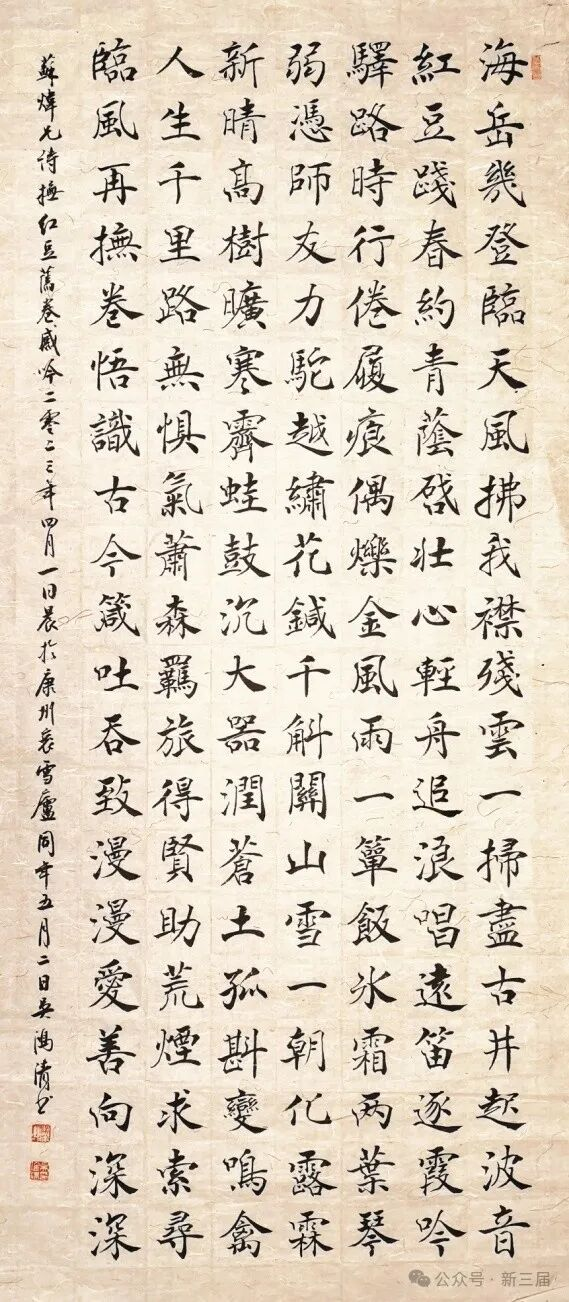 海岳幾登臨天風拂我襟殘雲一掃盡古井起波音
紅豆踐春約青蔭啓壯心輕舟追浪唱遠笛逐霞吟
驛路時行倦履痕偶爍金風雨一簞飯冰霜兩葉琴
弱憑師友力駝越繡花鍼千斛關山雪一朝化露霖
新晴高樹曠寒霽蛙鼓沉大器潤蒼土孤斟變鳴禽
人生千里路無惧氣蕭森羈旅得賢助荒煙求索尋
臨風再撫卷悟識古今箴吐吞致漫漫愛善向深深
蘇煒兄詩撫紅豆舊卷感吟二零二三年四月一日晨於康州衮雪廬同年五月二日吳鴻清书
公众号·新三届